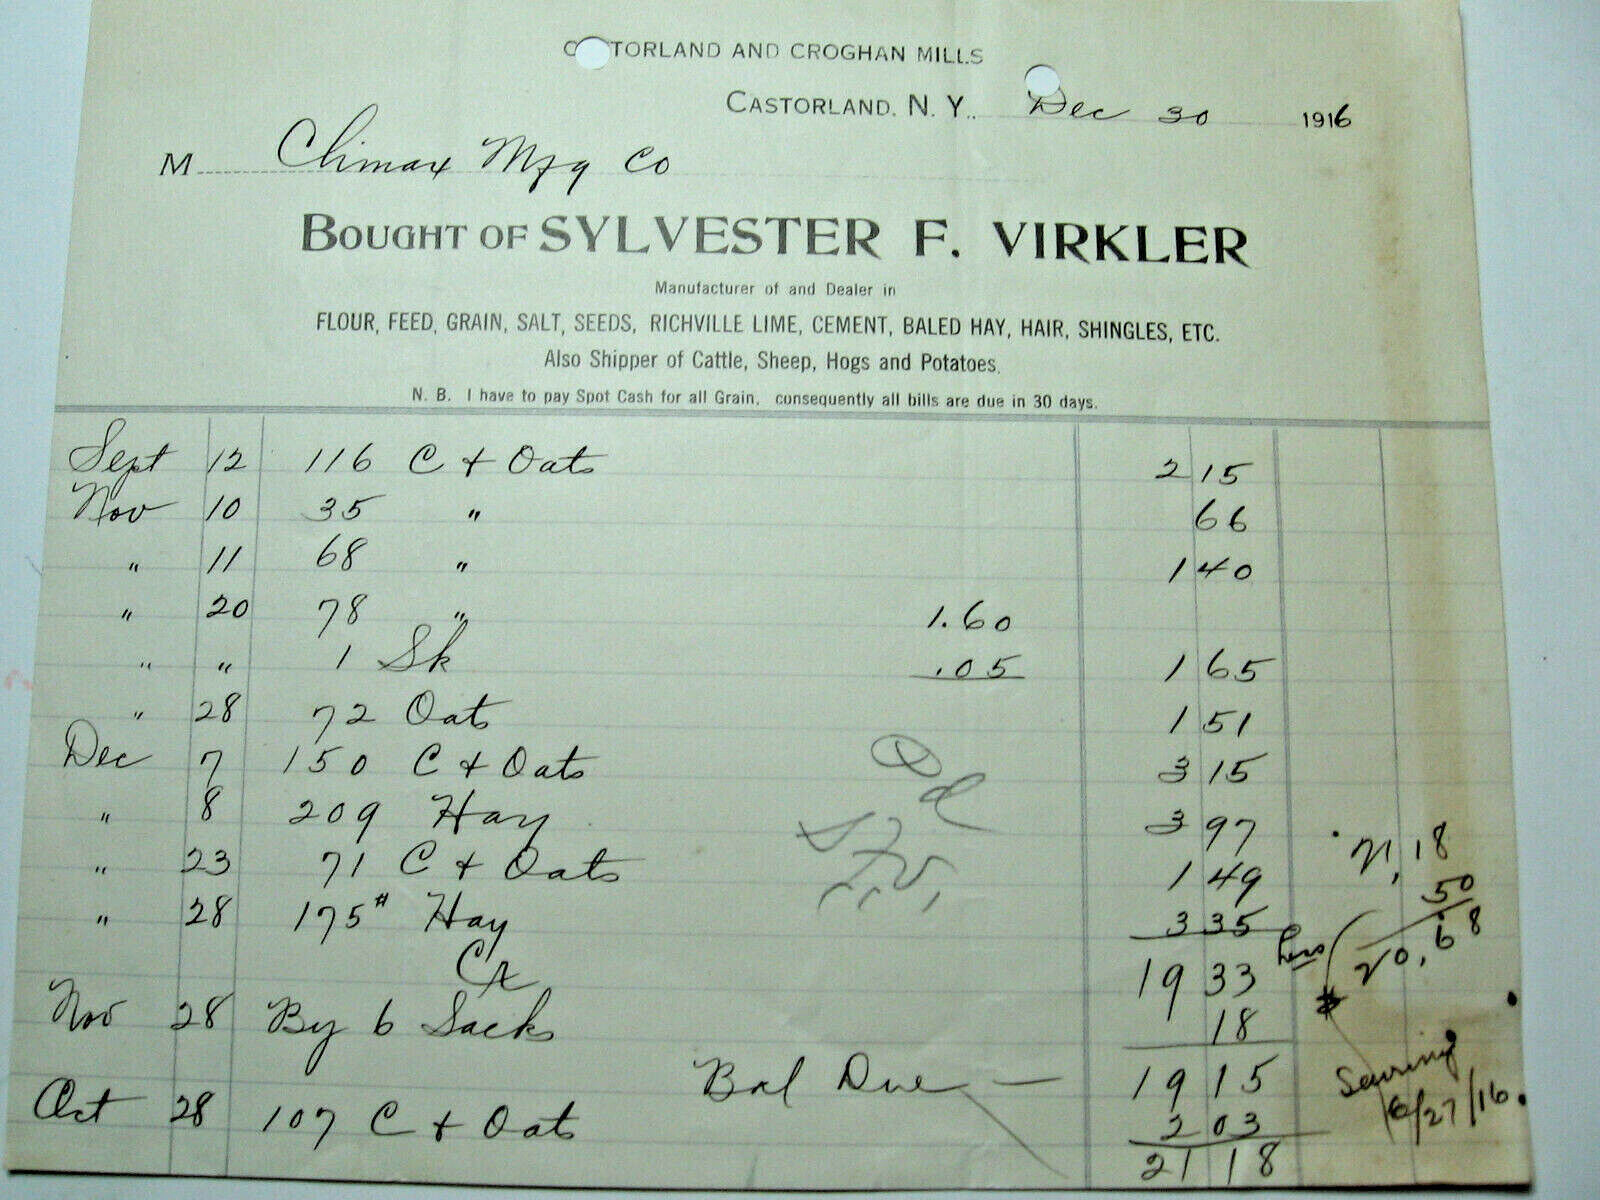 C TORLAND AND CROGHAN MILLS
CASTORLAND, N. Y., Dec 30 1916
M Climax Mfg Co
BOUGHT OF SYLVESTER F. VIRKLER
Manufacturer of and Dealer in
FLOUR, FEED, GRAIN, SALT, SEEDS, RICHVILLE LIME, CEMENT, BALED HAY, HAIR, SHINGLES, ETC.
Also Shipper of Cattle, Sheep, Hogs and Potatoes.
N. B. I have to pay Spot Cash for all Grain, consequently all bills are due in 30 days.
Sept 12 116 C + Oats 2 15
Nov 10 35 " 66
" 11 68 " 1 40
" 20 78 " 1.60
" " 1 Sk .05 1 65
" 28 72 Oats 1 51
Dec 7 150 C + Oats 3 15
" 8 209 Hay 3 97
" 23 71 C + Oats 1 49
" 28 175# Hay 3 35
Cr 19 33
Nov 28 By 6 Sacks 18
Bal Due — 19 15
Oct 28 107 C + Oats 2 03
21 18
Pd
S.F.V.
21,18
Less 50
20,68
6/27/16.